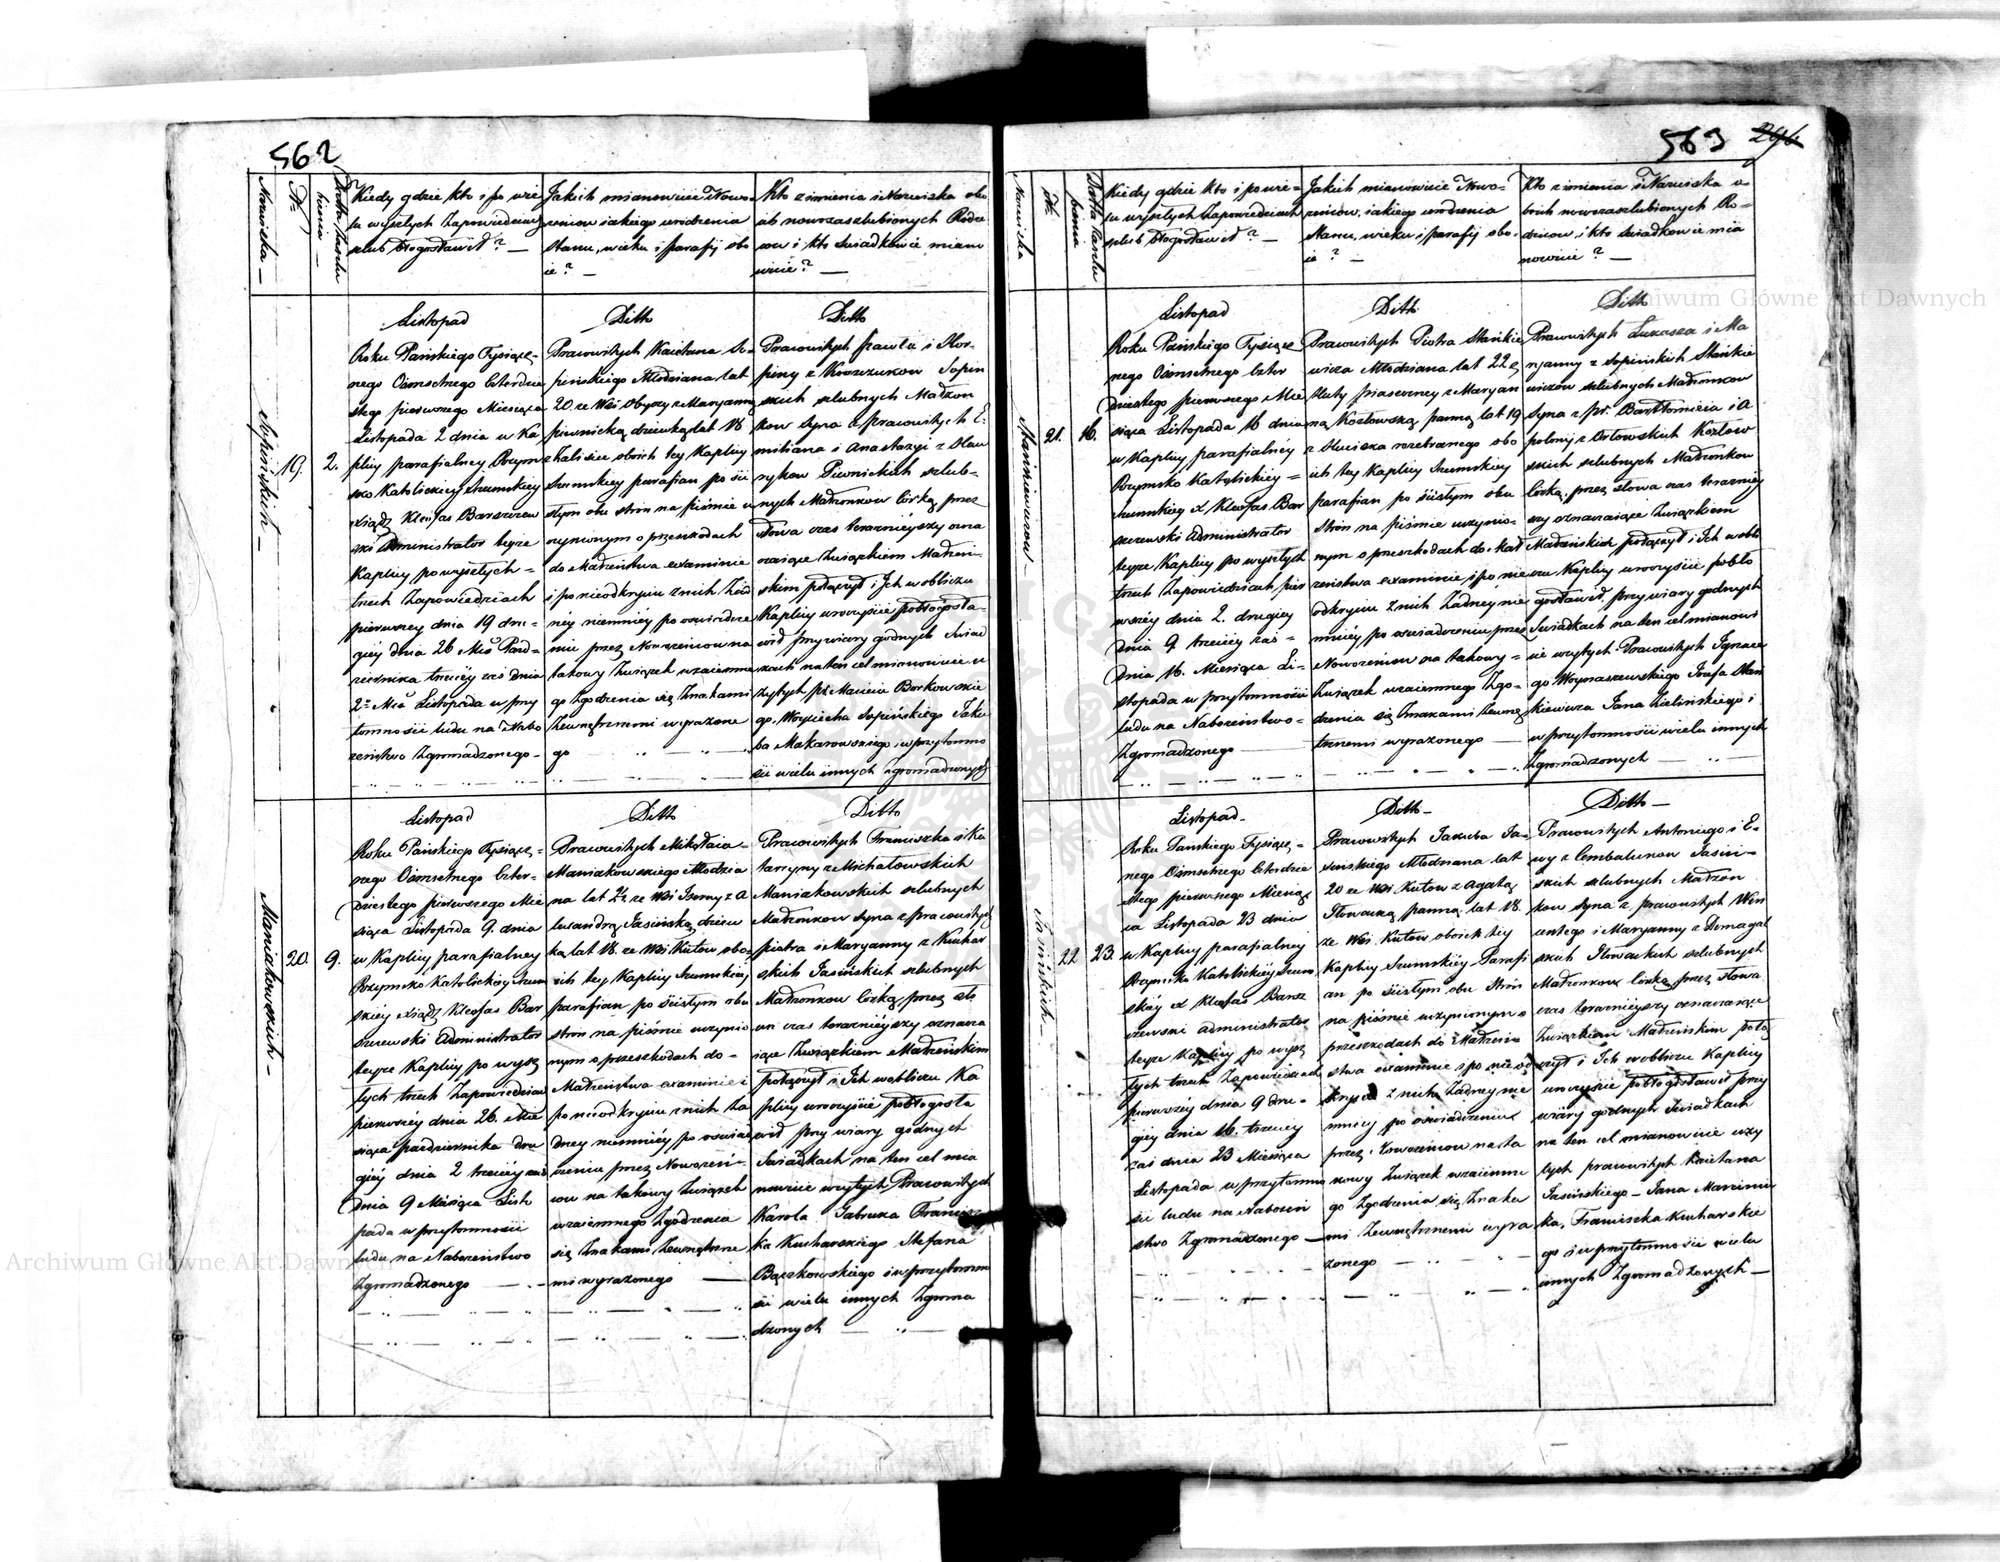 562
Nazwiska —
№
Datta zaszłu
bienia —
Kiedy gdzie kto i po wie
lu wyszłych Zapowiedziach
szlub błogosławił? —
Jakich mianowicie Nowo-
żeńców iakiego urodzenia
Stanu, wieku i parafij obo
ie? —
Kto z imienia i Nazwiska obo
ich nowozaszlubionych Rodzi
ców i kto Świadkowie miano
wicie? —
Sopińskich —
19.
2.
Listopad
Roku Pańskiego Tysiącz-
nego Osmsetnego Czterdzie
stego pierwszego Miesiąca
Listopada 2 dnia w Ka
plicy parafialney Rzym
sko Katolickiey Szumskiey
xiądz Kleofas Barszczew
ski Administrator teyże
Kaplicy po wyszłych =
trzech Zapowiedziach
pierwszey dnia 19 dru-
giey dnia 26 Mca Paź-
dziernika trzeciey zaś dnia
2º Mca Listopada w przy
tomności ludu na Nabo
żeństwo Zgromadzonego —
Ditto
Pracowitych Kaietana So-
pińskiego Młodziana lat
20 ze Wsi Obyczy z Maryanną
piwnicką dziewką lat 18
z kalisiec oboich tey Kaplicy
Szumskiey parafian po ści
słym obu stron na piśmie u
czynionym o przeszkodach
do Małżeństwa examinie
i po nieodkryciu z nich Żad
néy niemniéy po oświadcze
niu przez Nowożeńców na
takowy Związek wzaiemne
go Zgodzenia się Znakami
Zewnętrznemi wyrażone
go
Ditto
Pracowitych Pawła i Ror-
piny z Kraszukow Sopin
skich szlubnych Małżon
kow Syna z pracowitych E-
miliana i Anastazyi z Staw
nykow Piwnickich szlub-
nych Małżonkow Córką przez
słowa czas teraznieyszy ozna
czaiące Związkiem Małżeń-
skim połączył i Ich w obliczu
Kaplicy uroczyście pobłogosła-
wił przy wiary godnych Świad
kach na ten cel mianowicie u
żytych pr Macieia Borkowskie
go, Woyciecha Sopińskiego Jaku
ba Makarowskiego i w przytomno
ści wielu innych zgromadzonych
Maniakowskich —
20.
9.
Listopad
Roku Pańskiego Tysiącz-
nego Osmsetnego Czter-
dziestego pierwszego Mie
siąca Listopada 9. dnia
w Kaplicy parafialney
Rzymsko Katolickiey Szum
skiey xiądz Kleofas Bar
szczewski Administrator
teyże Kaplicy po wysz
łych trzech Zapowiedziach
pierwszéy dnia 26. Mie
siąca października dru
giéy dnia 2 trzeciéy zaś
dnia 9 Miesiąca Listo
pada w przytomności
ludu na Nabożeństwo
Zgromadzonego —
Ditto
Pracowitych Mikołaia
Maniakowskiego Młodzia
na lat 22 ze Wsi Iserny z A
lexandrą Jasińską dziew
ką lat 18. ze Wsi Kutow obo-
ich tey Kaplicy Szumskiey
parafian po ścisłym obu
stron na piśmie uczynio
nym o przeszkodach do-
Małżeństwa examinie i
po nieodkryciu z nich Ża
dney niemniéy po oświad
czeniu przez Nowożeń-
ców na takowy Związek
wzaiemnego Zgodzenia
się Znakami Zewnętrzne
mi wyrażonego —
Ditto
Pracowitych Franciszka i Ka
tarzyny z Michałowskich
Maniakowskich szlubnych
Małżonkow Syna z pracowitych
piotra i Maryanny z Kuchar
skich Jasińskich szlubnych
Małżonkow Córką, przez sło
wa czas teraznieyszy oznacza
iące Związkiem Małżeńskim
połączył i Ich w obliczu Ka
plicy uroczyście pobłogosła
wił przy wiary godnych
Świadkach na ten cel mia
nowicie użytych Pracowitych
Karola Jabruka Francisz
ka Kucharskiego Stefana
Bączkowskiego i w przytomno
ści wielu innych Zgroma
dzonych
563 296
Nazwiska
№
Datta zaszlu
bienia
Kiedy gdzie kto i po wie-
lu wyszłych Zapowiedziach
szlub błogosławił? —
Jakich mianowicie Nowo-
żeńców, iakiego urodzenia
Stanu, wieku i parafij obo-
ie? —
Kto z imienia i Nazwiska o-
boich nowozaszlubionych Ro-
dziców, i kto świadkowie mia
nowicie? —
Stańkiewiczow
21.
16.
Listopad
Roku Pańskiego Tysiącz
nego Osmsetnego Czter
dziestego pierwszego Mie
siąca Listopada 16 dnia
w Kaplicy parafialnéy
Rzymsko Katolickiéy =
Szumskiey X Kleofas Bar
szczewski Administrator
teyże Kaplicy po wyszłych
trzech Zapowiedziach pier
wszéy dnia 2. drugiey
dnia 9 trzeciéy zaś =
dnia 16. Miesiąca Li-
stopada w przytomności
ludu na Nabożeństwo-
Zgromadzonego —
Ditto
Pracowitych Piotra Stańkie
wicza Młodziana lat 22 z
Huty piaseczney z Maryan
ną Kozłowską panną lat 19
z Huciska rozebranego obo
ich tey Kaplicy Szumskiey
parafian po ścisłym obu
Stron na piśmie uczynio-
nym o przeszkodach do Mał
żeństwa examinie i po nie
odkryciu z nich Żadney nie
mniéy po oświadczeniu przez
Nowożeńców na takowy =
Związek wzaiemnego Zgo-
dzenia się Znakami Zewnę
trznemi wyrażonego —
Ditto
Pracowitych Łukasza i Ma
ryanny z Sopińskich Stańkie
wiczów szlubnych Małżonkow
Syna z pr. Bartłomieia i A
polonij z Orłowskich Kozłow
skich szlubnych Małżonkow
Córką, przez słowa czas teraznieÿ
szy oznaczaiące Związkiem
Małżeńskim połączył i Ich w obli
czu Kaplicy uroczyście pobło
gosławił, przy wiary godnych
Świadkach na ten cel mianowi
cie użytych Pracowitych Ignace
go Woynaszewskiego Józefa Stań
kiewicza Jana Zielińskiego i
w przytomności wielu innych
Zgromadzonych —
Jasińskich.
22
23.
Listopad
Roku Pańskiego Tysiącz-
nego Osmsetnego Czterdzie
stego pierwszego Miesią
ca Listopada 23 dnia
w Kaplicy parafialney
Rzymsko Katolickiéy Szum
skiéy X Kleofas Barsz
czewski administrator
teyże Kaplicy po wysz
łych trzech Zapowiedziach
pierwszéy dnia 9 dru-
giéy dnia 16. trzeciey
zaś dnia 23 Miesiąca
Listopada w przytomno
ści ludu na Nabożeń
stwo Zgromadzonego —
Ditto —
Pracowitych Jakuba Ja-
sińskiego Młodziana lat
20 ze Wsi Kutow z Agatą
Głowacką panną lat 18.
ze Wsi Kutow oboich tey
Kaplicy Szumskiéy Parafi
an po ścisłym obu Stron
na piśmie uczynionym o
przeszkodach do Małżeń
stwa examinie i po nieod
kryciu z nich Żadney nie
mniey po oświadczeniu
przez Nowożeńcow na ta
kowy Związek wzaiemne
go Zgodzenia się Znaka
mi Zewnętrznemi wyra
żonego —
Ditto —
Pracowitych Antoniego i E-
wy z Cembalukow Jasiń-
skich szlubnych Małżon
kow Syna z pracowitych Win
centego i Maryanny z Domagal
skich Głowackich szlubnych
Małżonkow Córką przez Słowa
czas teraznieyszy oznaczaiące
Związkiem Małżeńskim połą
czył i Ich w obliczu Kaplicy
uroczyście pobłogosławił przy
wiary godnych Świadkach
na ten cel mianowicie uży
tych pracowitych Kaietana
Jasińskiego — Jana Marcinu
ka, Franciszka Kucharskie
go i w przytomności wielu
innych Zgromadzonych —
Archiwum Główne Akt Dawnych
Archiwum Główne Akt Dawnych